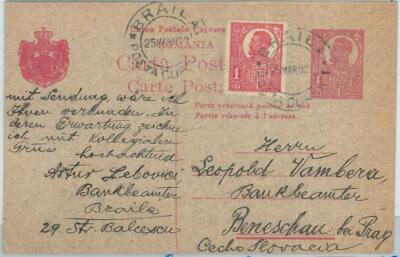 Union Postale Universelle
ROMÂNIA
Carte Post
BRAILA
25 MAR 922
BRAILA
MAR 92
1
1
Parte reservată pentru adresă.
Partie réservée à l'adresse.
mit Sendung, wäre ich
Ihnen verbunden. In
deren Erwartung zeichne
ich mit kollegialem
Gruss
hochachtend
Artur Lebovici
Bankbeamter
Braila
29. Str. Balcescu
Herrn
Leopold Vambera,
Bankbeamter
Beneschau bei Prag
Cecho Slovacia